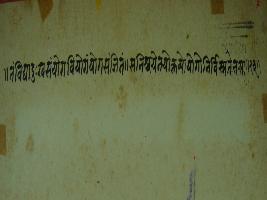 ॥तंविद्याद्दुःखसंयोगवियोगंयोगसंज्ञितं॥सनिश्चयेनयोक्तव्योयोगोनिर्विण्णचेतसा॥२३॥